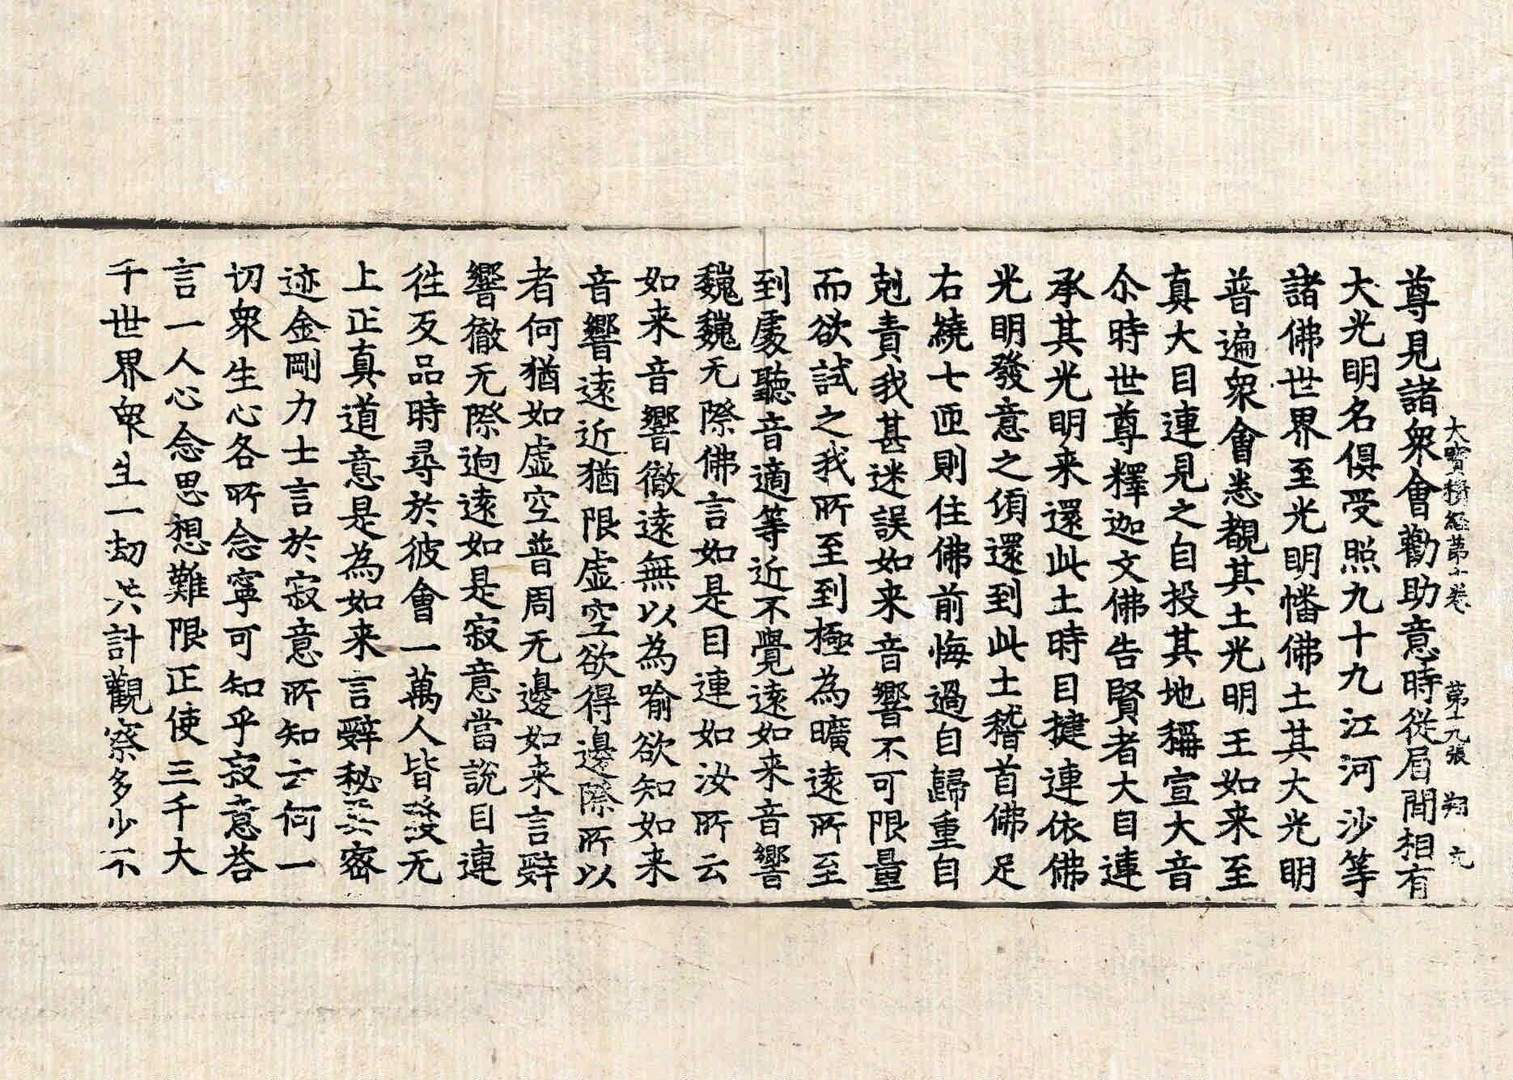 尊見諸衆會勸助意時從眉間相有
大寶積經第十卷 第十九張 翔 九
大光明名俱受照九十九江河沙等
諸佛世界至光明幡佛土其大光明
普遍衆會悉覩其土光明王如來至
真大目連見之自投其地稱宣大音
尒時世尊釋迦文佛告賢者大目連
承其光明来還此土時目揵連依佛
光明發意之頃還到此土稽首佛足
右繞七匝則住佛前悔過自歸重自
剋責我甚迷誤如来音響不可限量
而欲試之我所至到極為曠遠所至
到處聽音適等近不覺遠如来音響
巍巍无際佛言如是目連如汝所云
如来音響徹遠無以為喻欲知如来
音響遠近猶限虚空欲得邊際所以
者何猶如虚空普周无邊如来言辝
響徹无際逈遠如是寂意當說目連
往反品時尋於彼會一萬人皆發无
上正真道意是為如来言辝秘要密
迹金剛力士言於寂意所知云何一
切衆生心各所念寧可知乎寂意荅
言一人心念思想難限正使三千大
千世界衆生一劫共計觀察多少不